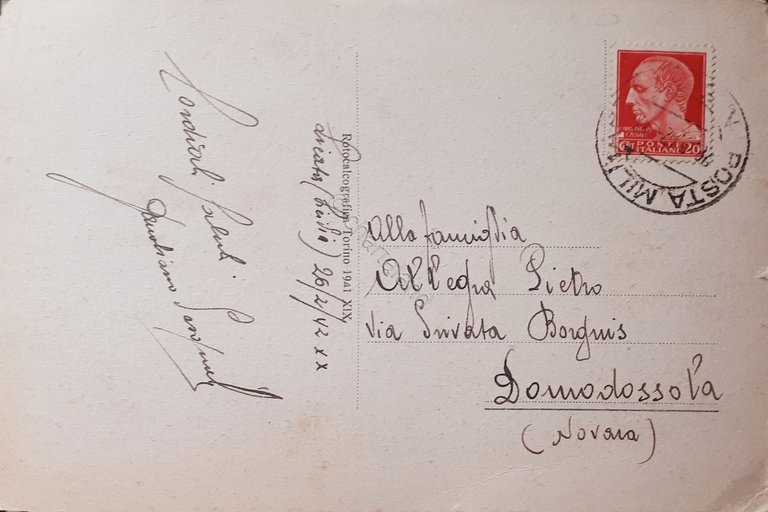 Cordiali Saluti
Licata (Sicilia) 26/2/42 XX
Rotocalcografica Torino 1941 XIX
POSTE
ITALIANE
20
POSTA MILITARE
Alla famiglia
Allegra Pietro
Via Privata Borgnis
Domodossola
(Novara)